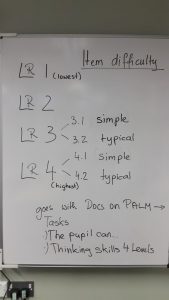 Item difficulty
LR 1 (lowest)
LR 2
LR 3 3.1 simple
3.2 typical
LR 4 4.1 simple
(highest) 4.2 typical
goes with Docs on PALM →
Tasks
:) The pupil can...
:) Thinking skills 4 levels